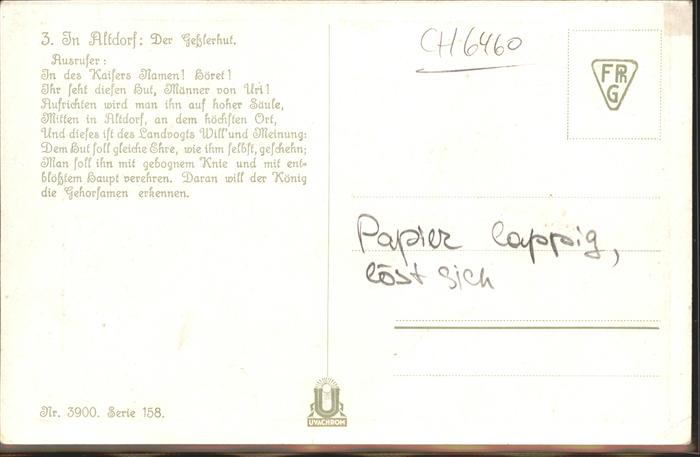 3. In Altdorf: Der Geßlerhut.
Ausrufer:
In des Kaisers Namen! Höret!
Ihr seht diesen Hut, Männer von Uri!
Aufrichten wird man ihn auf hoher Säule,
Mitten in Altdorf, an dem höchsten Ort,
Und dieses ist des Landvogts Will' und Meinung:
Dem Hut soll gleiche Ehre, wie ihm selbst, geschehn;
Man soll ihn mit gebognem Knie und mit ent-
blößtem Haupt verehren. Daran will der König
die Gehorsamen erkennen.
Nr. 3900. Serie 158.
UVACHROM
CH 6460
FPhG
Papier lappig,
löst sich